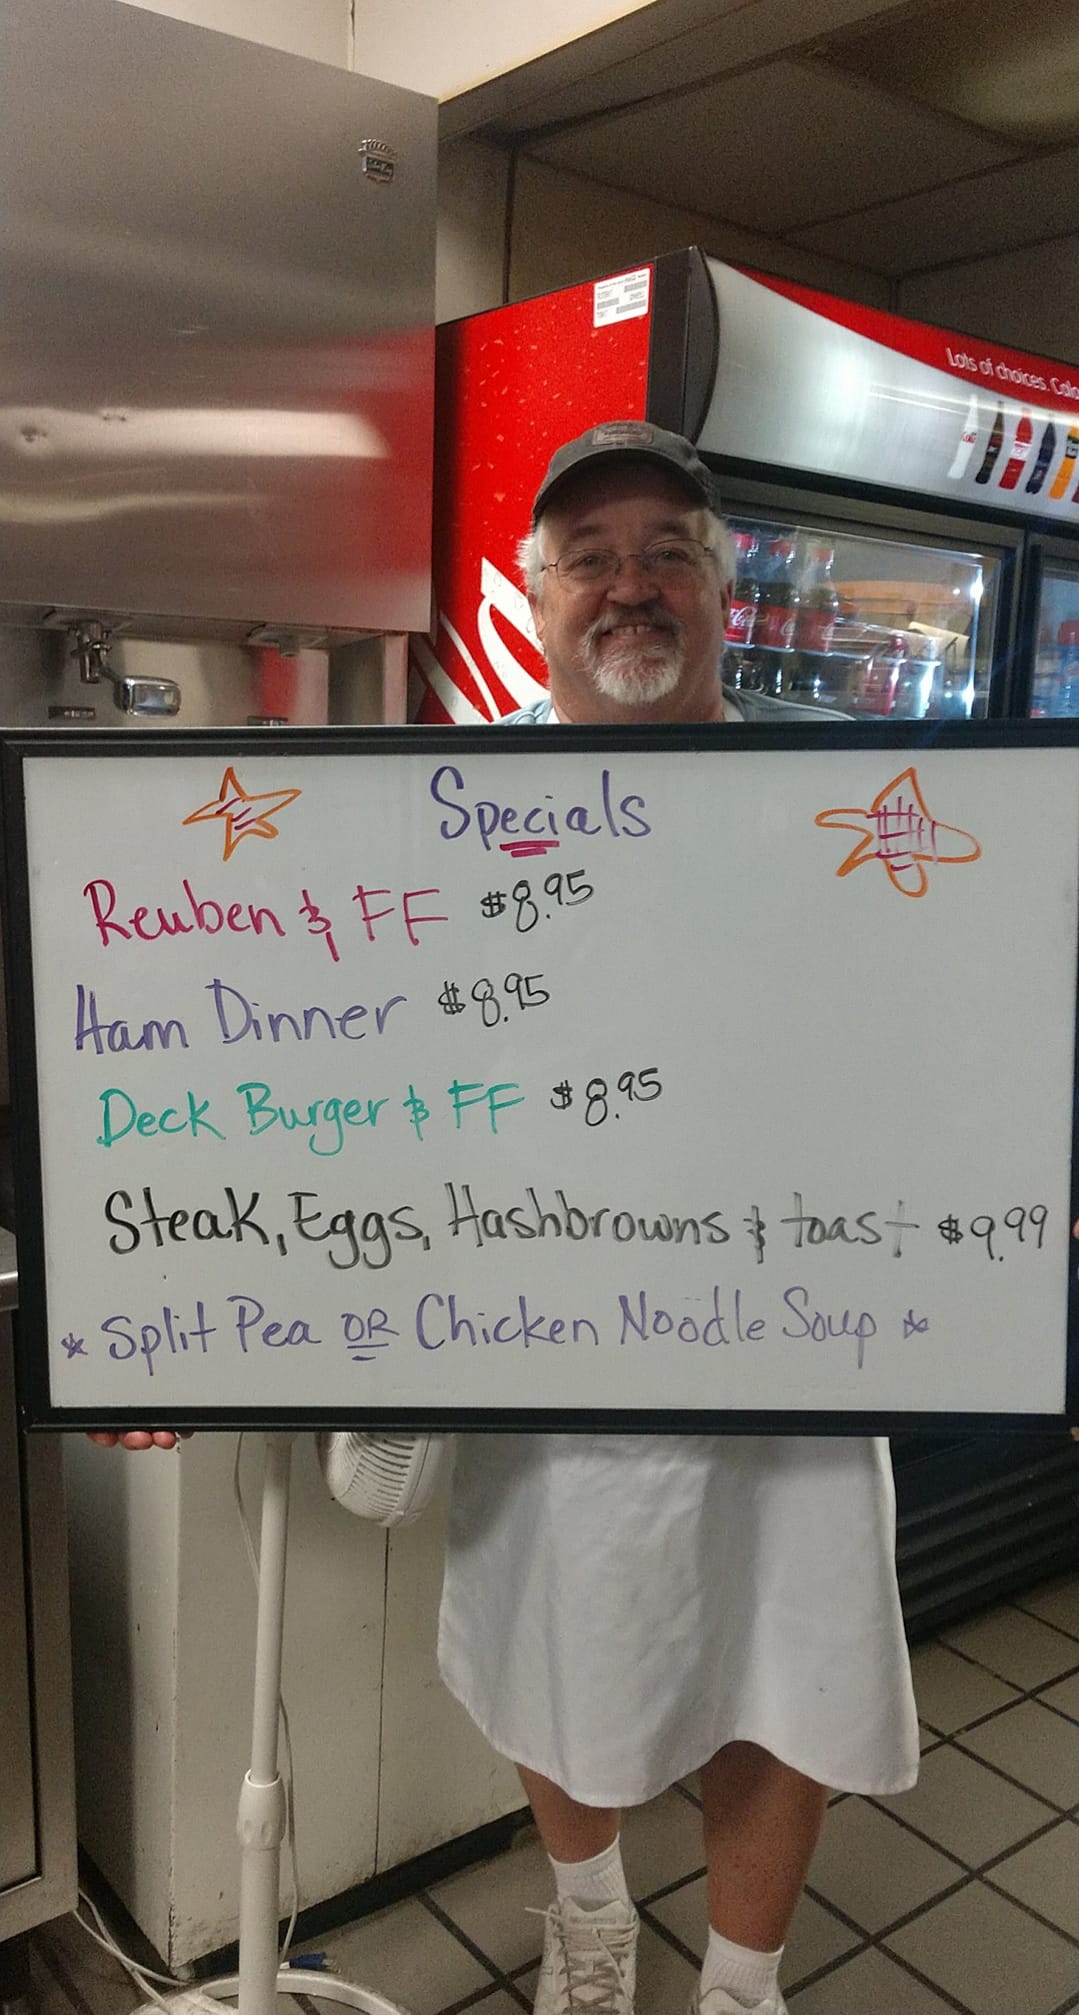 Lots of choices. Colo
Specials
Reuben & FF $8.95
Ham Dinner $8.95
Deck Burger & FF $8.95
Steak, Eggs, Hashbrowns & toast $9.99
* Split Pea OR Chicken Noodle Soup *